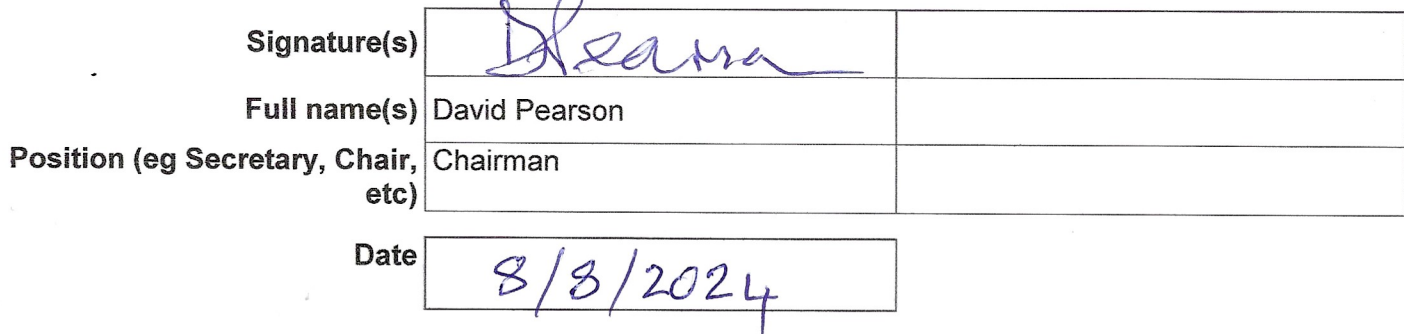 Signature(s) DPearson
Full name(s) David Pearson
Position (eg Secretary, Chair, Chairman
etc)
Date 8/8/2024